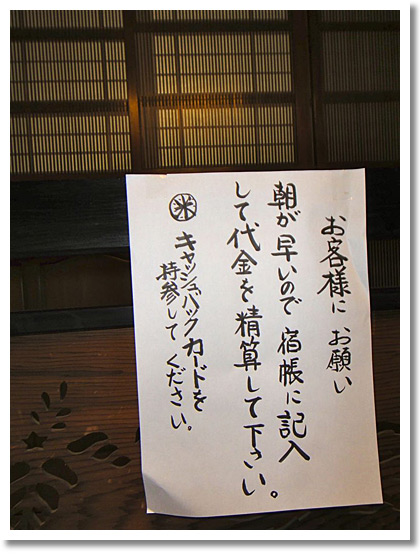 お客様にお願い
朝が早いので宿帳に記入
して代金を精算して下さい。
㊍キャッシュバックカードを
持参してください。